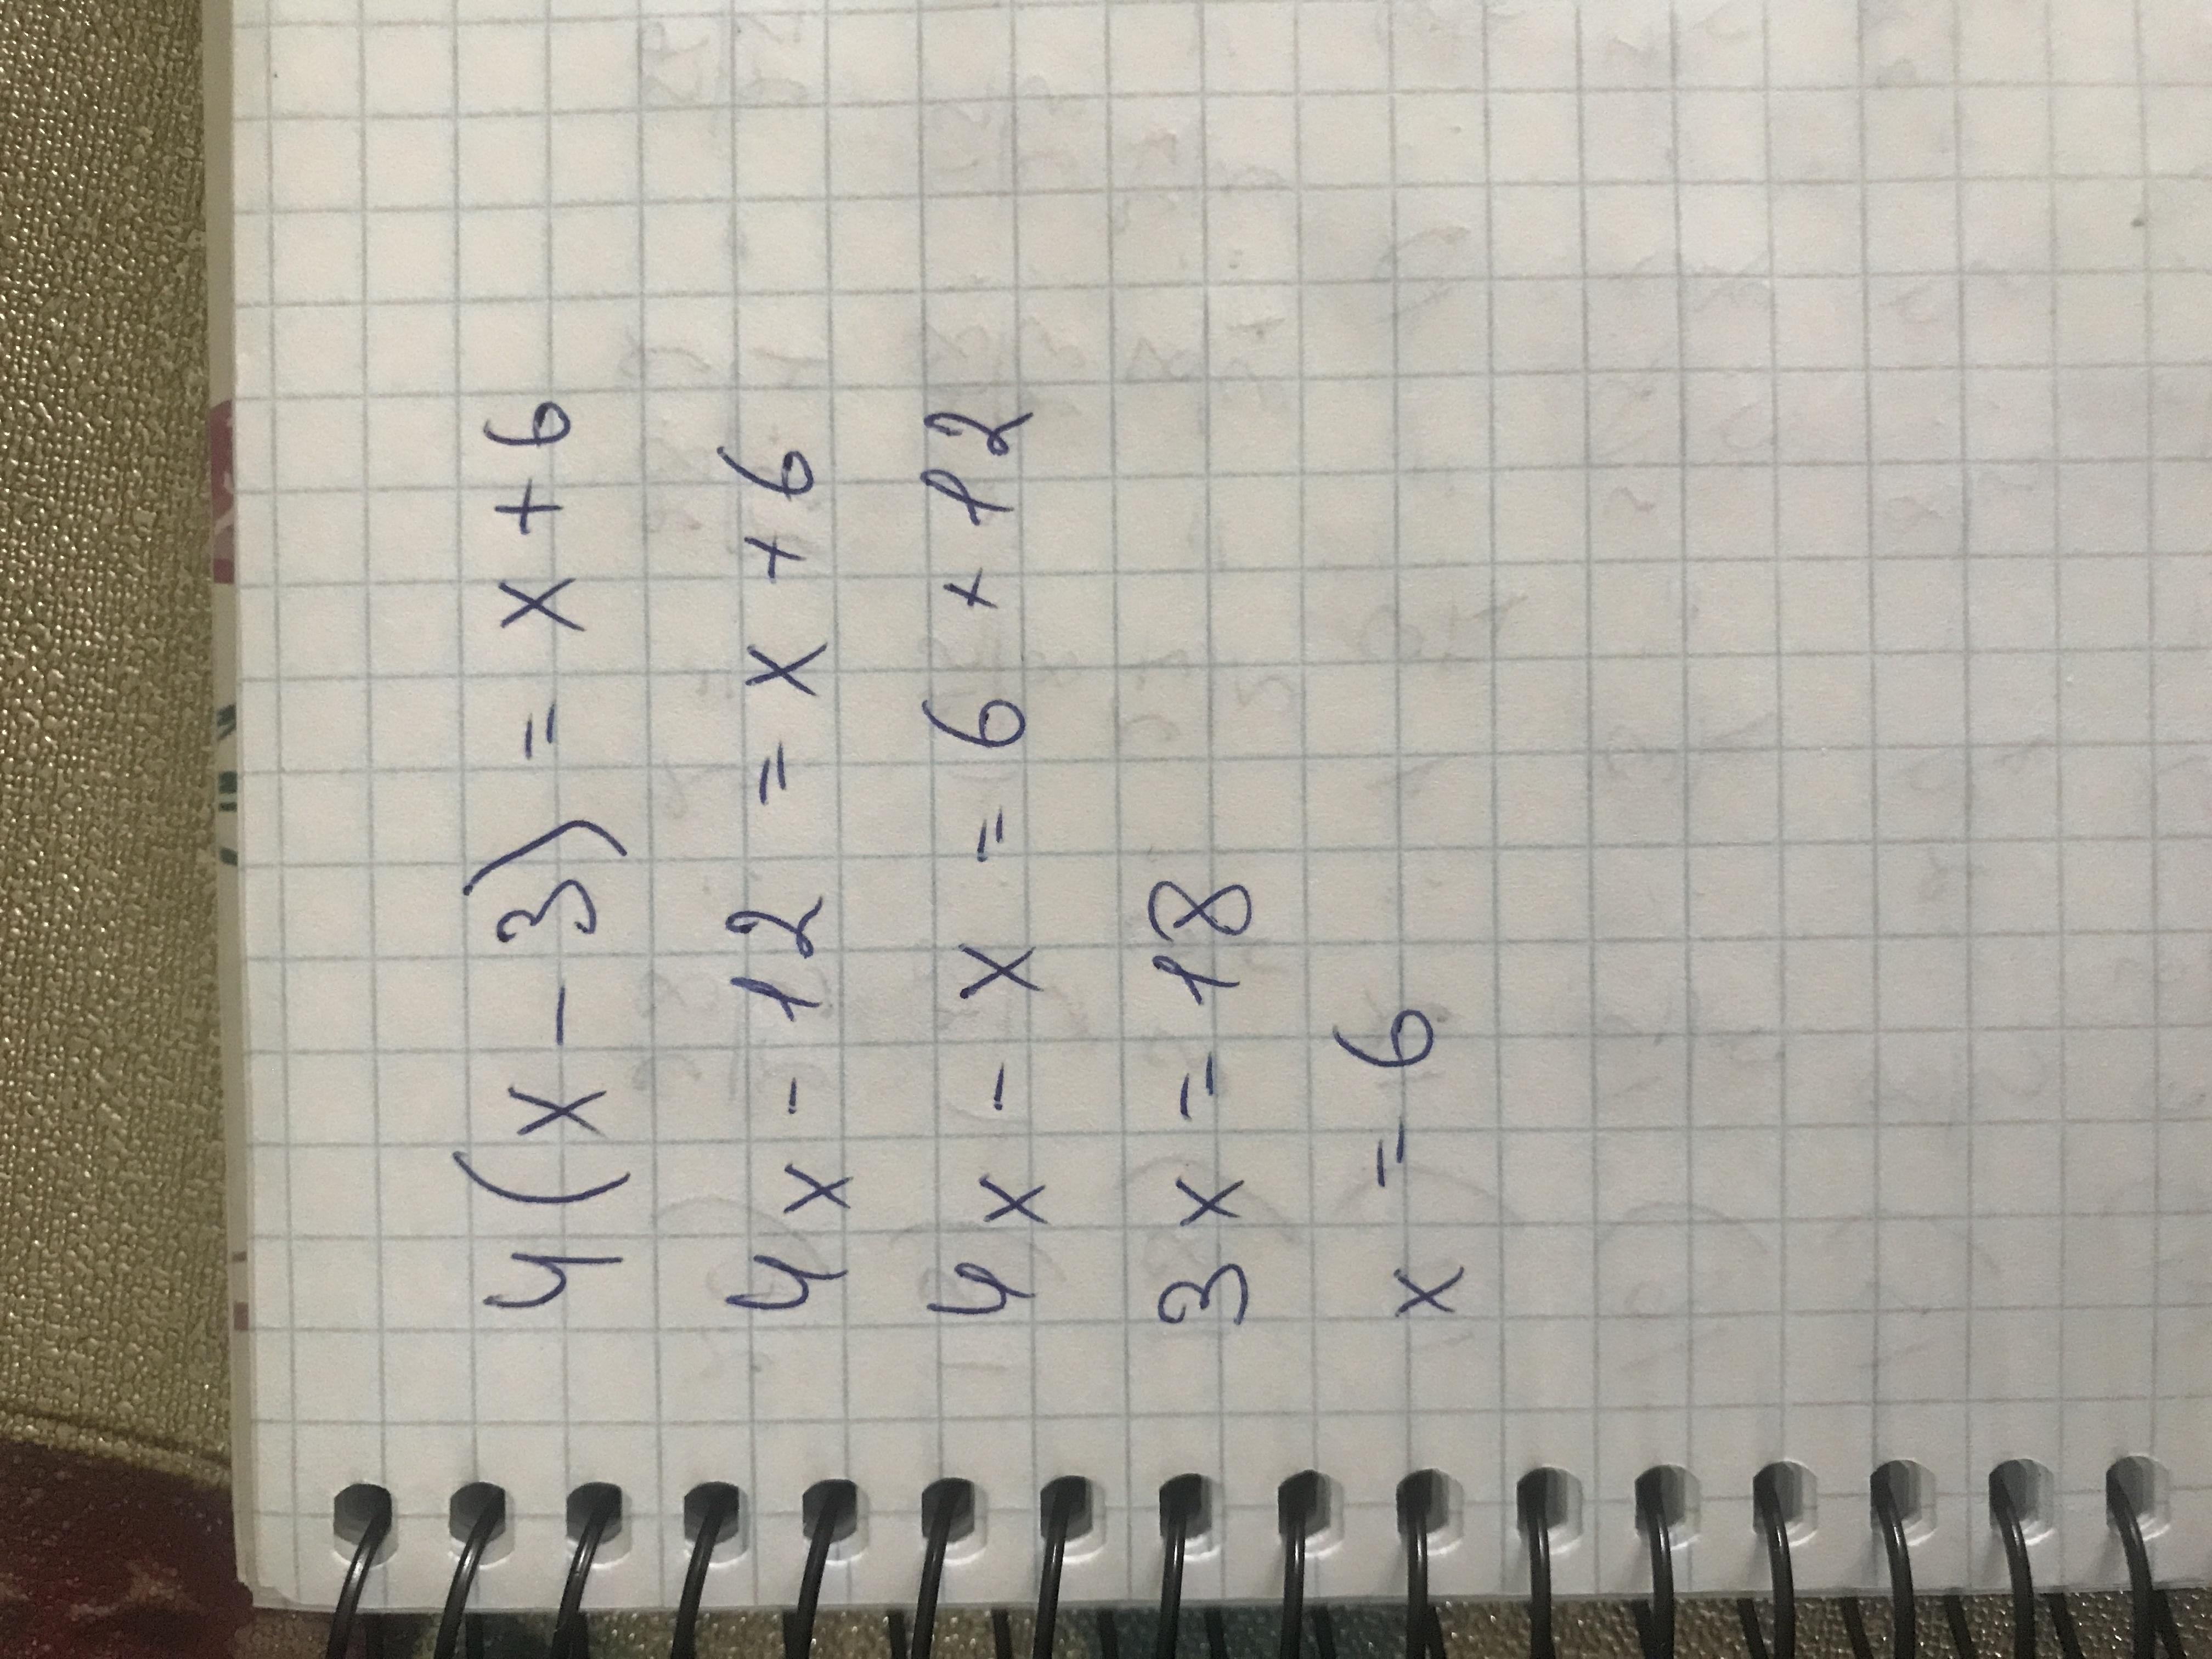 4(x-3) = x + 6
4x - 12 = x + 6
4x - x = 6 + 12
3x = 18
x = 6